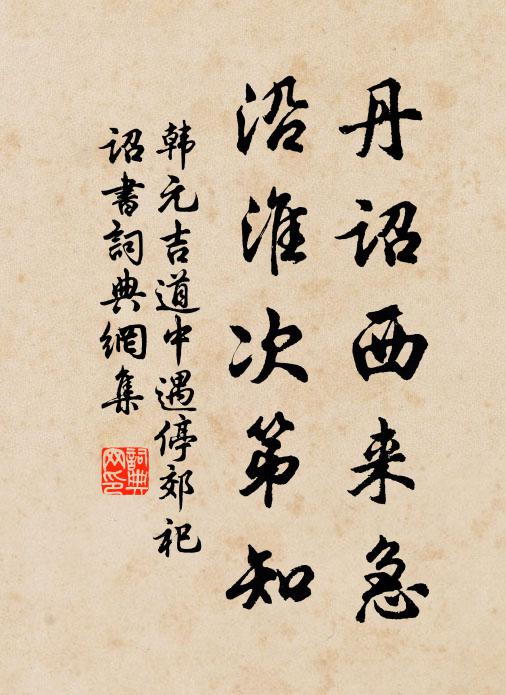 丹诏西来急
沿淮次第知
韩元吉道中遇停郊祀
诏书詞典網集
詞典
网印